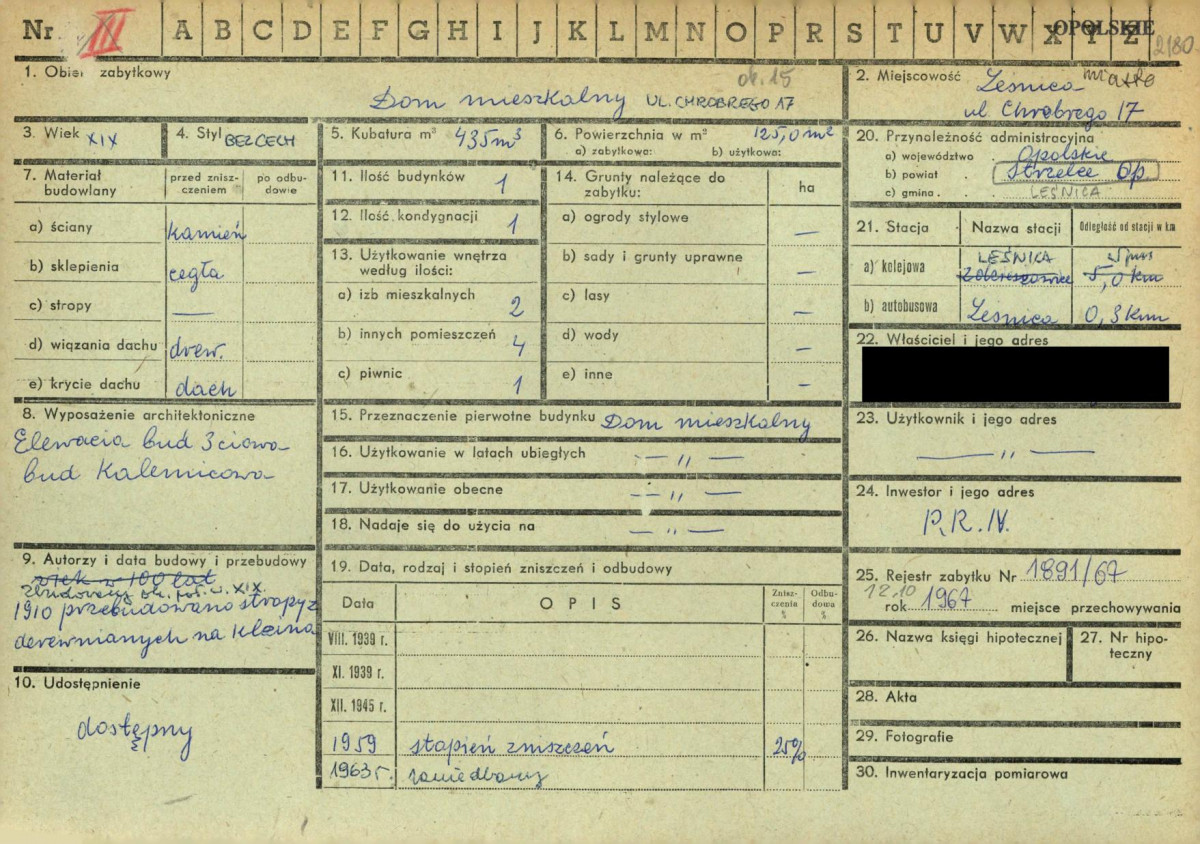 Nr III A B C D E F G H I J K L M N O P R S T U V W X Y Z OPOLSKIE 2180
1. Obiekt zabytkowy ok. 15
Dom mieszkalny UL. CHROBREGO 17
2. Miejscowość miasto
Leśnica
ul. Chrobrego 17
3. Wiek XIX
4. Styl BEZ CECH
5. Kubatura m³ 435 m³
6. Powierzchnia w m² 125,0 m²
a) zabytkowa: b) użytkowa:
7. Materiał budowlany
przed zniszczeniem
po odbudowie
a) ściany kamień
b) sklepienia cegła
c) stropy —
d) wiązania dachu drew.
e) krycie dachu dach
8. Wyposażenie architektoniczne
Elewacja bud 3ciowa
bud
9. Autorzy i data budowy i przebudowy
wiek w 100 lat
zbudowany ok. poł. w. XIX.
1910 przebudowano stropy z
derewnianych na
10. Udostępnienie
dostępny
11. Ilość budynków 1
12. Ilość kondygnacji 1
13. Użytkowanie wnętrza
według ilości:
a) izb mieszkalnych 2
b) innych pomieszczeń 4
c) piwnic 1
14. Grunty należące do
zabytku: ha
a) ogrody stylowe —
b) sady i grunty uprawne —
c) lasy —
d) wody —
e) inne —
15. Przeznaczenie pierwotne budynku Dom mieszkalny
16. Użytkowanie w latach ubiegłych — „ —
17. Użytkowanie obecne — „ —
18. Nadaje się do użycia na — „ —
19. Data, rodzaj i stopień zniszczeń i odbudowy
Data OPIS Zniszczenia % Odbudowa %
VIII. 1939 r.
XI. 1939 r.
XII. 1945 r.
1959 stopień zniszczeń 25%
1963 r. zaniedbany
20. Przynależność administracyjna
a) województwo Opolskie
b) powiat Strzelce Op.
c) gmina LEŚNICA
21. Stacja Nazwa stacji Odległość od stacji w km
LEŚNIKA
a) kolejowa Zdzieszowice 5,0 km
b) autobusowa Leśnica 0,3 km
22. Właściciel i jego adres
23. Użytkownik i jego adres
— „ —
24. Inwestor i jego adres
P.R.N.
25. Rejestr zabytku Nr 1891/67
12.10
rok 1967 miejsce przechowywania
26. Nazwa księgi hipotecznej
27. Nr hipoteczny
28. Akta
29. Fotografie
30. Inwentaryzacja pomiarowa